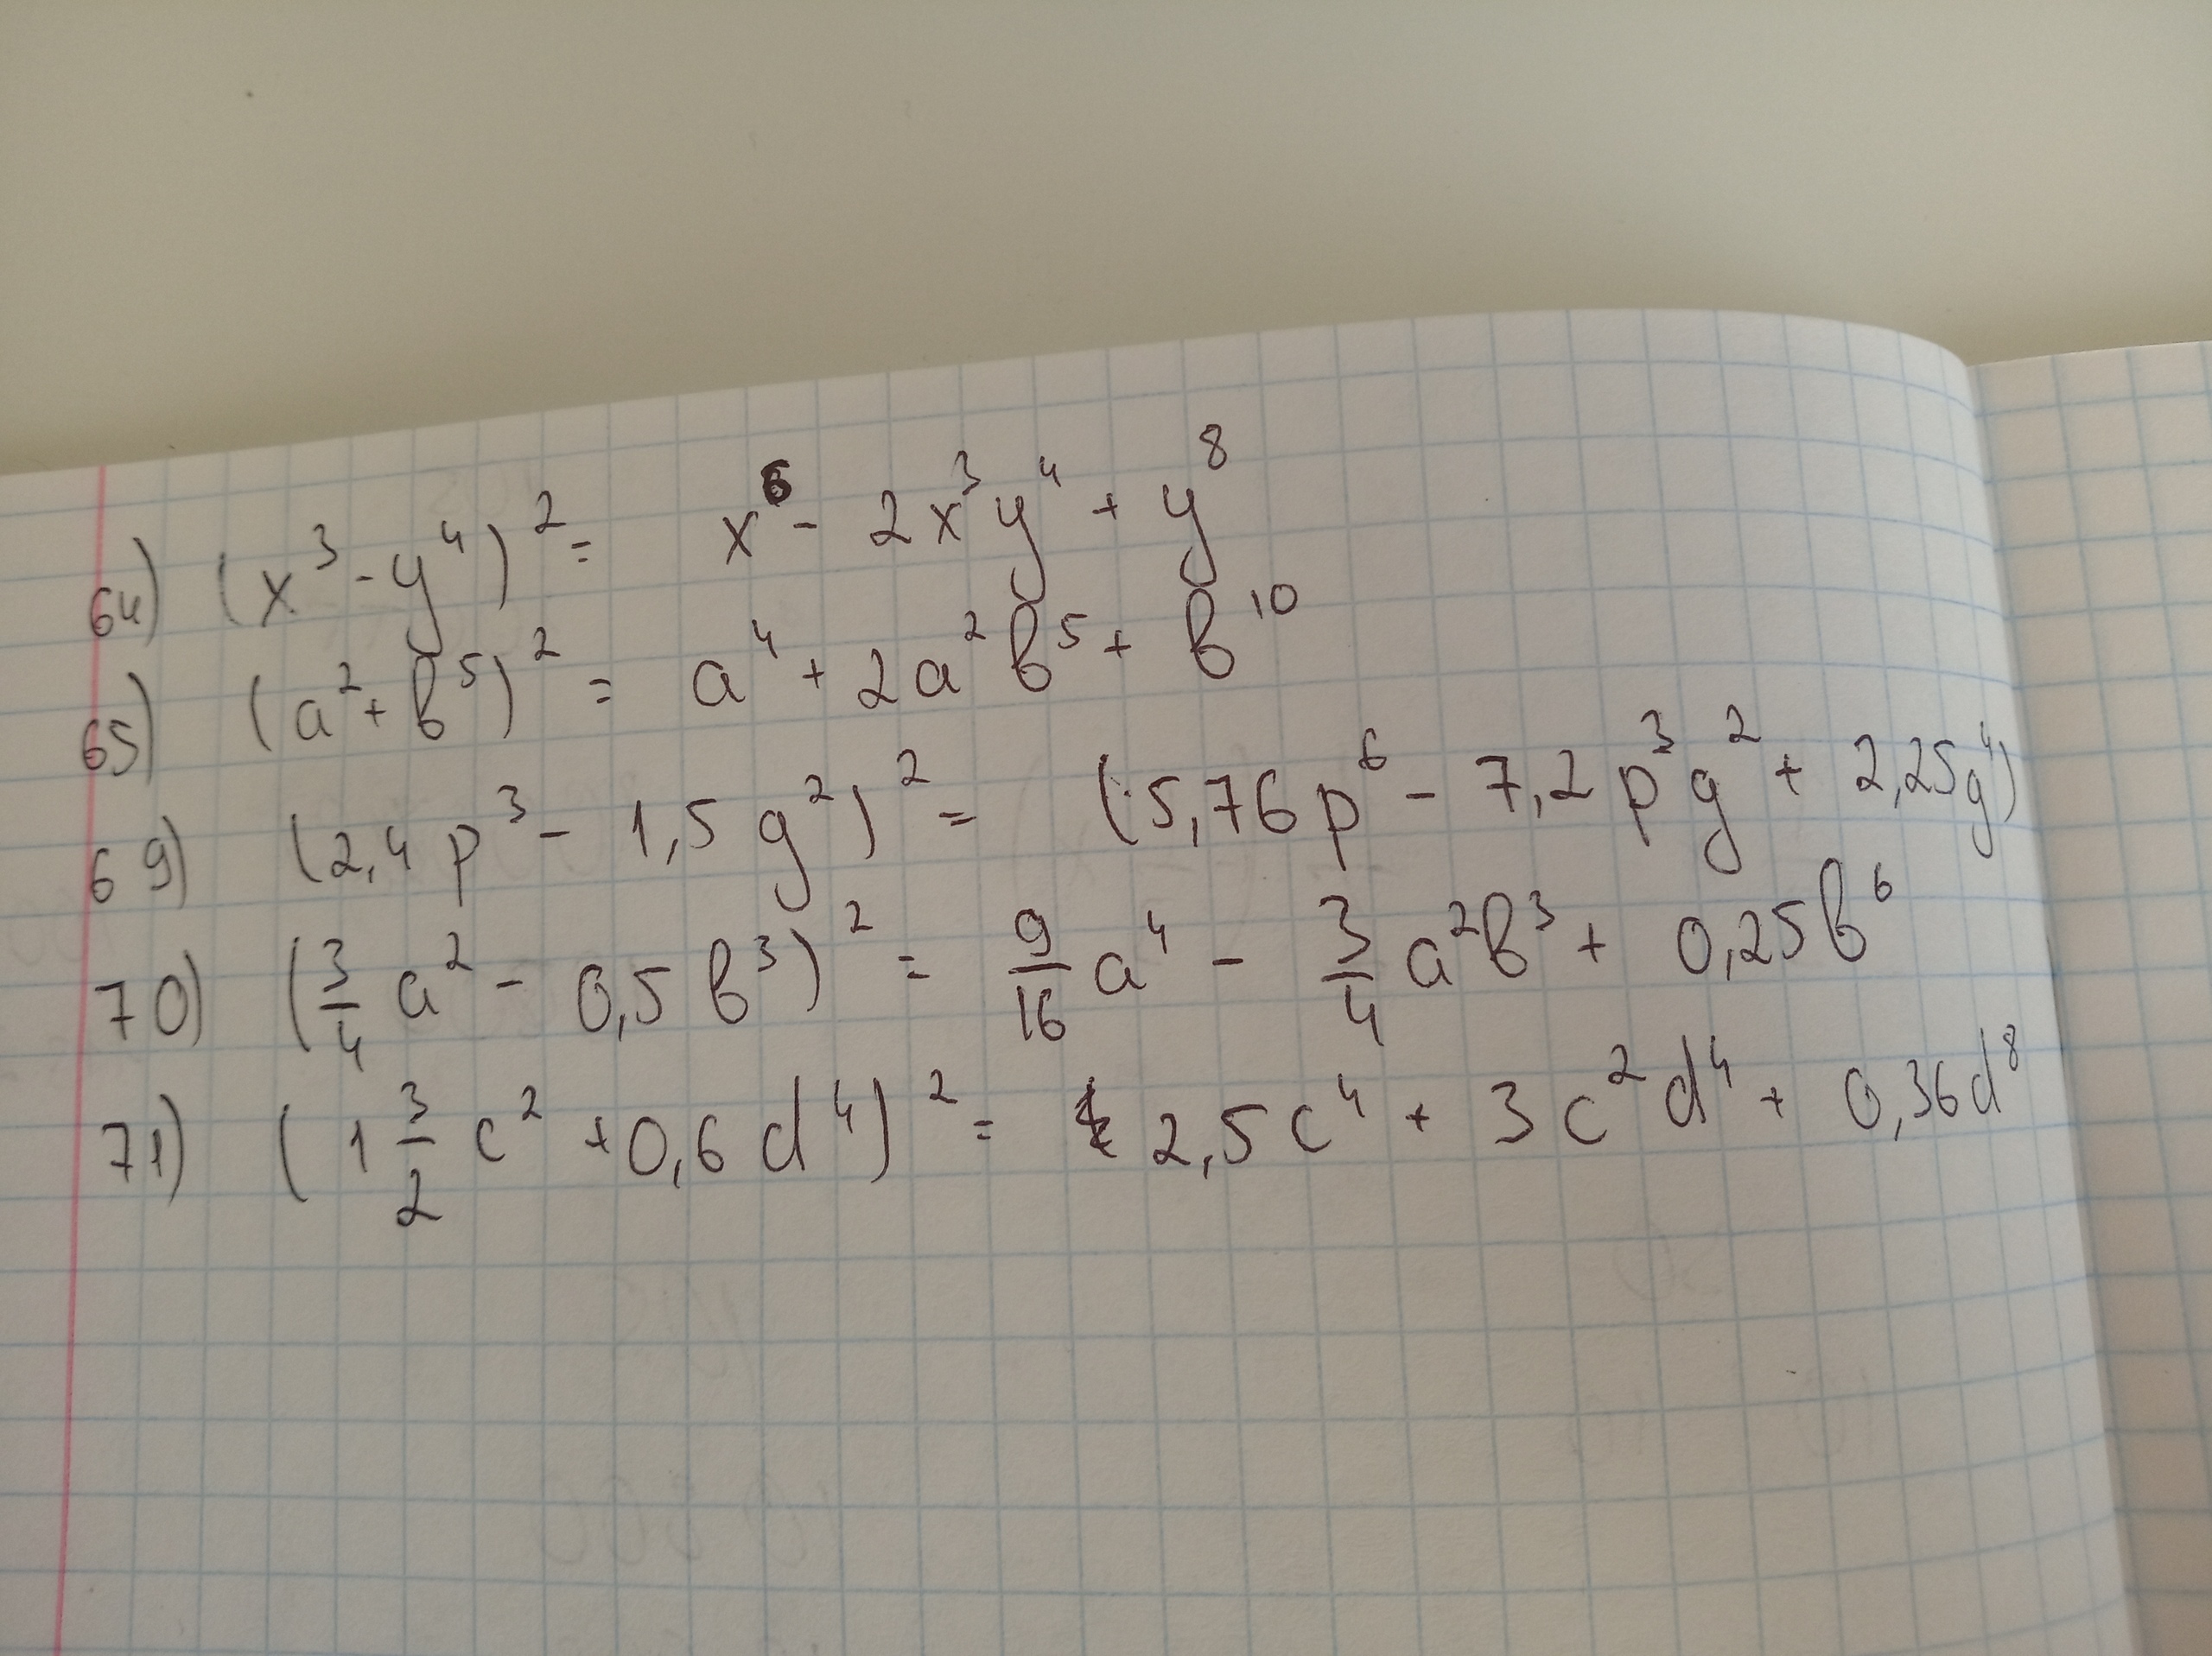 64) (x³ - y⁴)² = x⁶ - 2x³y⁴ + y⁸
65) (a² + b⁵)² = a⁴ + 2a²b⁵ + b¹⁰
69) (2,4p³ - 1,5g²)² = (5,76p⁶ - 7,2p³g² + 2,25g⁴)
70) (3/4 a² - 0,5b³)² = 9/16 a⁴ - 3/4 a²b³ + 0,25b⁶
71) (1 3/2 c² + 0,6d⁴)² = 2,5c⁴ + 3c²d⁴ + 0,36d⁸